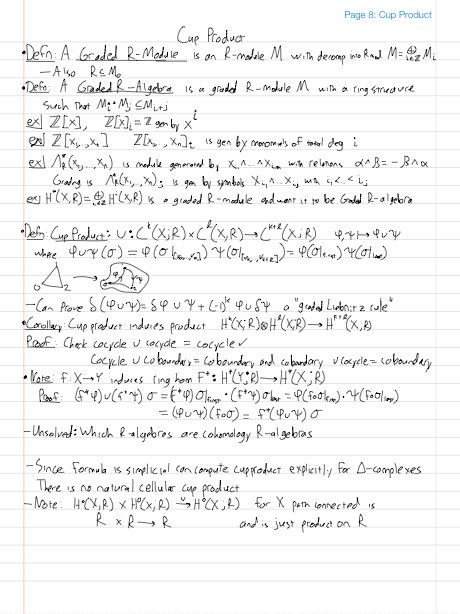 Page 8: Cup Product
Cup Product
•Defn: A Graded R-Module is an R-module M with decomp into R-mod M=⊕_{i∈Z} M_i
– Also R⊆M_0
•Defn: A Graded R-Algebra is a graded R-module M with a ring structure
such that M_i·M_j ⊆ M_{i+j}
ex] Z[x], Z[x]_i = Z gen by x^i
ex] Z[x_1,...,x_n] Z[x_1,...,x_n]_i is gen by monomials of total deg i
ex] Λ_R^*(x_1,...,x_n) is module generated by x_{i_1}∧...∧x_{i_m} with relations α∧β=-β∧α
Grading is Λ_R^*(x_1,...,x_n)_j is gen by symbols x_{i_1}∧...x_{i_j} with i_1<...<i_j
ex] H^*(X,R)=⊕_{i∈Z} H^i(X,R) is a graded R-module and want it to be Graded R-algebra
•Defn: Cup Product: ∪: C^k(X;R)×C^ℓ(X,R)→C^{k+ℓ}(X;R) φ,ψ↦φ∪ψ
where φ∪ψ(σ) = φ(σ|_{[v_0,...,v_k]}) ψ(σ|_{[v_k,...,v_{k+ℓ}]}) = φ(σ|_{first}) ψ(σ|_{last})
0 1 2 φ ψ
– Can Prove δ(φ∪ψ)=δφ∪ψ+(-1)^k φ∪δψ a "graded Liebnitz rule"
•Corollary: Cup product induces product H^k(X;R)⊗H^ℓ(X;R)→H^{k+ℓ}(X;R)
Proof: Check cocycle ∪ cocycle = cocycle✓
Cocycle ∪ coboundary=coboundary and coboundary ∪ cocycle=coboundary
•Note: f:X→Y induces ring hom F^*: H^*(Y;R)→H^*(X;R)
Proof: (f^*φ)∪(f^*ψ) σ = (f^*φ) σ|_{first}·(f^*ψ)σ|_{last} = φ(f∘σ|_{first})·ψ(f∘σ|_{last})
= (φ∪ψ)(f∘σ) = f^*(φ∪ψ) σ
– Unsolved: Which R-algebras are cohomology R-algebras
– Since Formula is simplicial can compute cup product explicitly for Δ-complexes
There is no natural cellular cup product
– Note: H^0(X,R) × H^0(X,R) →^∪ H^0(X;R) for X path connected is
R × R → R and is just product on R